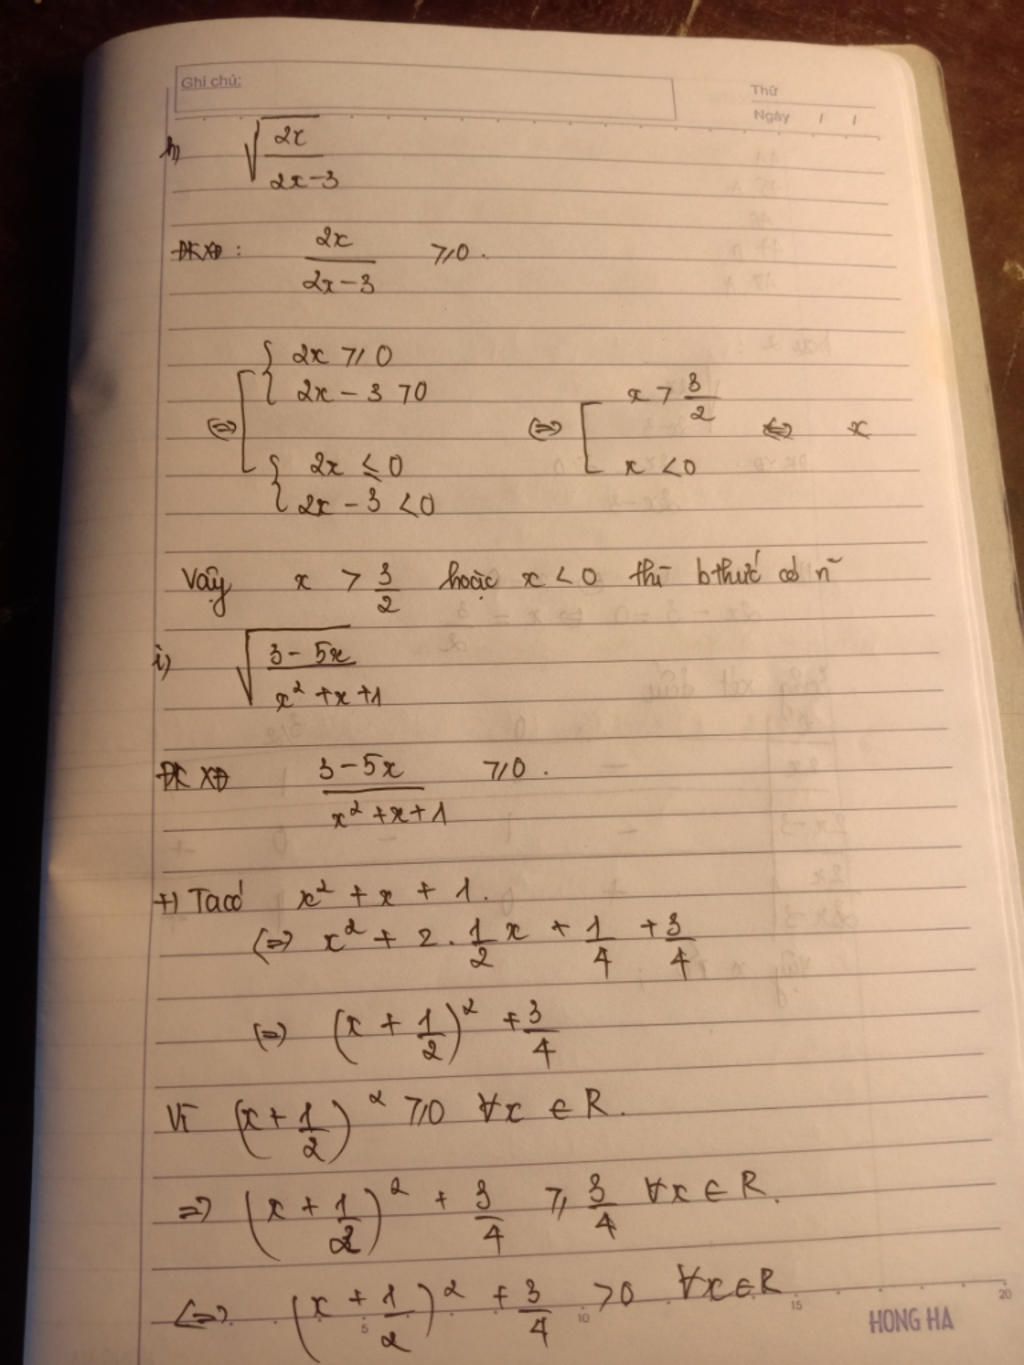 Ghi chú:
Thứ
Ngày / /
h) √(2x/(2x-3))
ĐKXĐ: 2x/(2x-3) ≥0.
⇔ [ { 2x ≥ 0
2x - 3 >0
{ 2x ≤ 0
2x - 3 <0
⇔ [ x > 3/2
x < 0
⇔ x
Vậy x > 3/2 hoặc x < 0 thì bthức có n~
i) √((3-5x)/(x²+x+1))
ĐKXĐ (3-5x)/(x²+x+1) ≥0.
+) Ta có x² + x + 1.
⇔ x² + 2. 1/2 x + 1/4 + 3/4
⇔ (x + 1/2)² + 3/4
Vì (x + 1/2)² ≥0 ∀x ∈ R.
⇒ (x + 1/2)² + 3/4 ≥ 3/4 ∀x ∈ R.
⇔ (x + 1/2)² + 3/4 >0 ∀x ∈ R
5 10 15 20
HONG HA